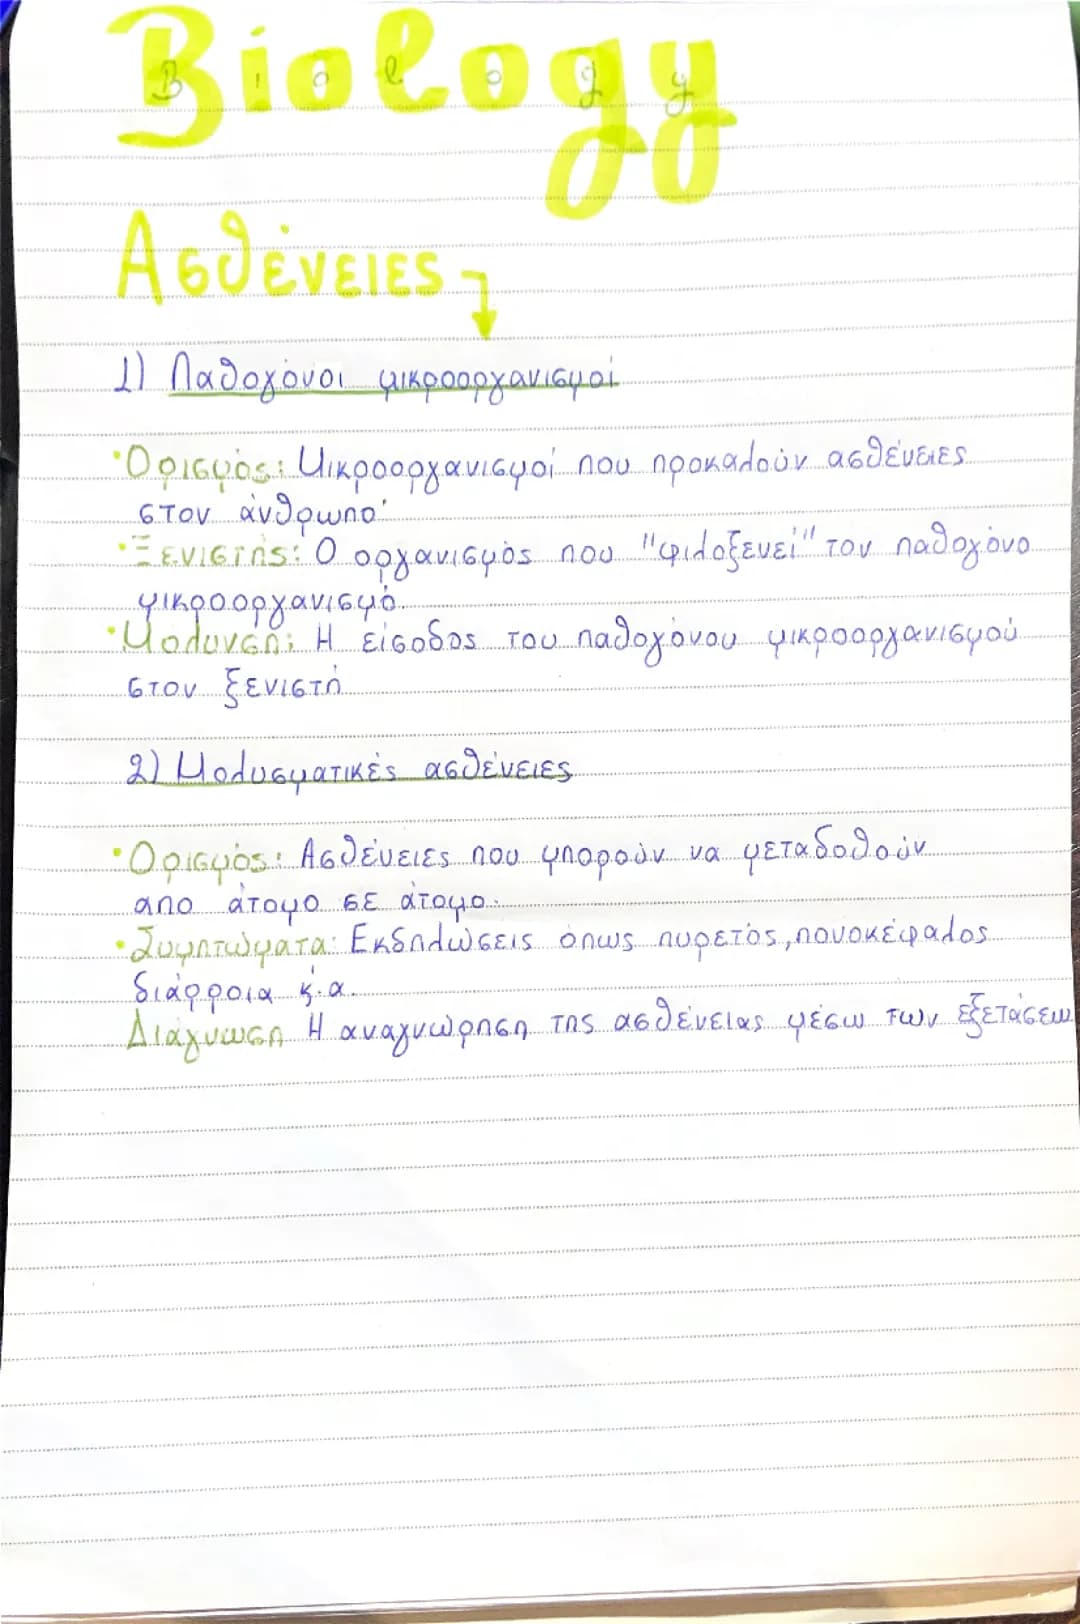 Biology
Ασθένειες
1) Παθογόνοι μικροοργανισμοί
• Ορισμός: Μικροοργανισμοί που προκαλούν ασθένειες
στον άνθρωπο.
• Ξενιστής: Ο οργανισμός που "φιλοξενεί" τον παθογόνο
μικροοργανισμό.
• Μόλυνση: Η είσοδος του παθογόνου μικροοργανισμού
στον ξενιστή
2) Μολυσματικές ασθένειες
• Ορισμός: Ασθένειες που μπορούν να μεταδοθούν
απο άτομο σε άτομο.
• Συμπτώματα: Εκδηλώσεις όπως πυρετός, πονοκέφαλος
διάρροια κ.α.
Διάγνωση Η αναγνώρηση της ασθένειας μέσω των εξετάσεων